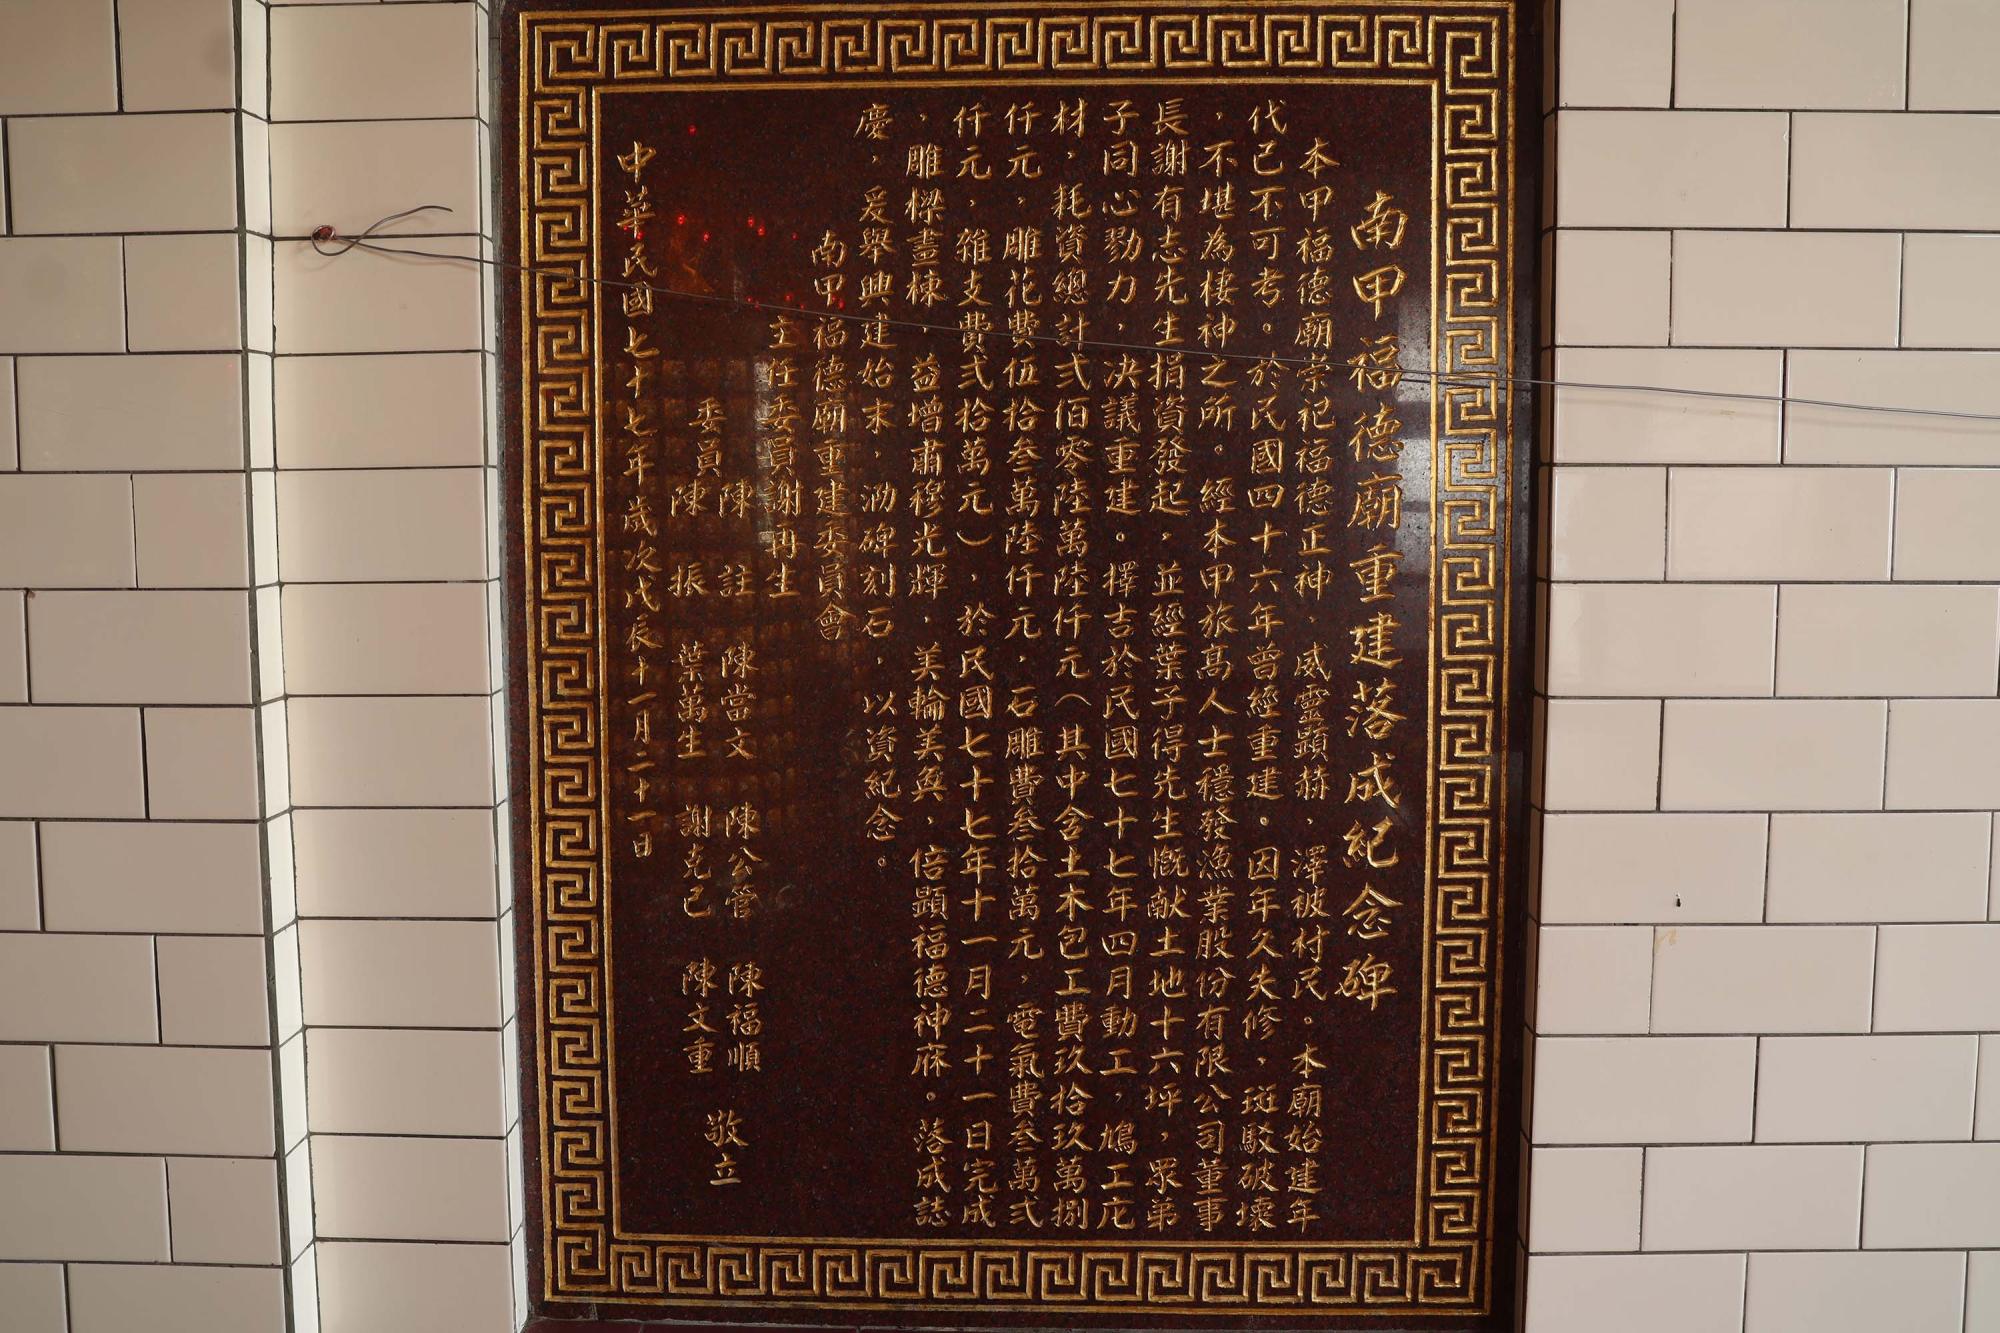 南甲福德廟重建落成紀念碑
本甲福德廟崇祀福德正神，威靈顯赫，澤被村民。本廟始建年
代已不可考。於民國四十六年曾經重建。因年久失修，斑駁破壞
，不堪為棲神之所。經本甲旅高人士穩發漁業股份有限公司董事
長謝有志先生捐資發起，並經葉子得先生慨献土地十六坪，眾弟
子同心勠力，决議重建。擇吉於民國七十七年四月動工，鳩工庀
材，耗資總計弍佰零陸萬陸仟元（其中含土木包工費玖拾玖萬捌
仟元，雕花費伍拾叁萬陸仟元，石雕費叁拾萬元，電氣費叁萬弍
仟元，雜支費弍拾萬元），於民國七十七年十一月二十一日完成
，雕樑畫棟，益增肅穆光輝，美輪美奐，倍顯福德神庥。落成誌
慶，爰舉興建始末，泐碑刻石，以資紀念。
南甲福德廟重建委員會
主任委員謝再生
委員 陳註 陳當文 陳公管 陳福順
陳振 葉萬生 謝克己 陳文重 敬立
中華民國七十七年歲次戊辰十一月二十一日